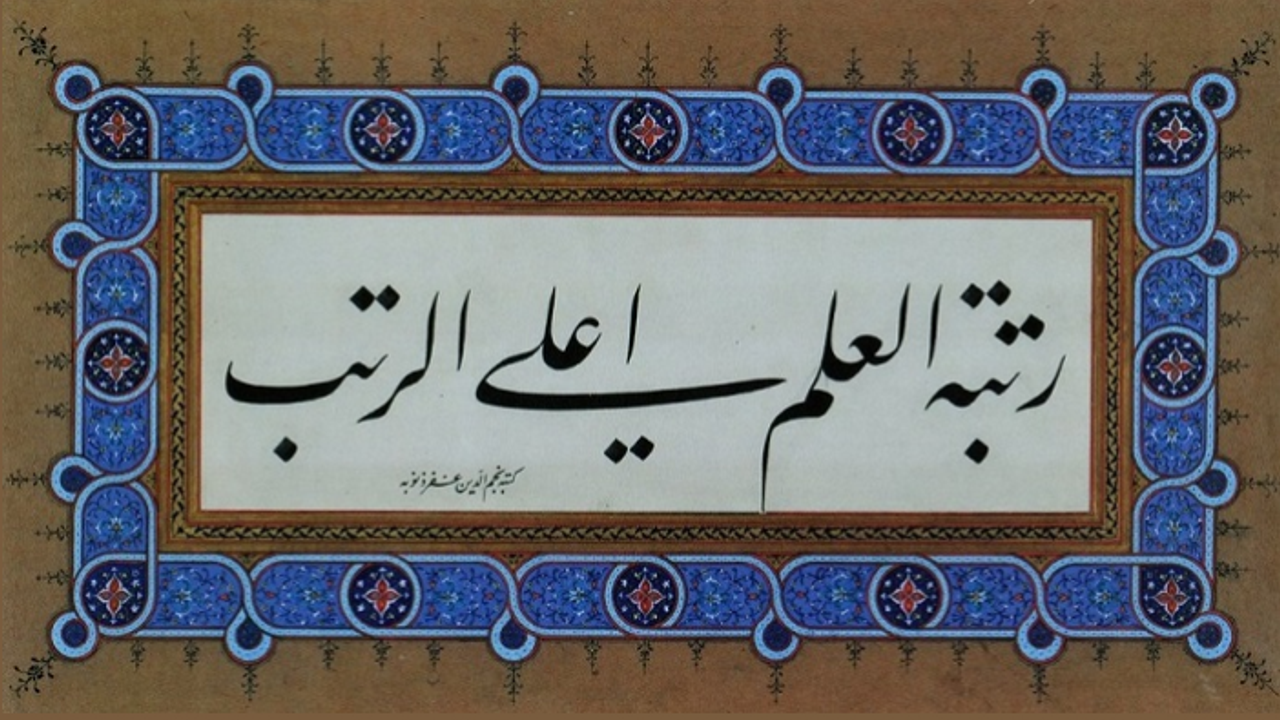 رتبة العلم اعلي الرتب
كتبه نجم الدين غفر ذنوبه